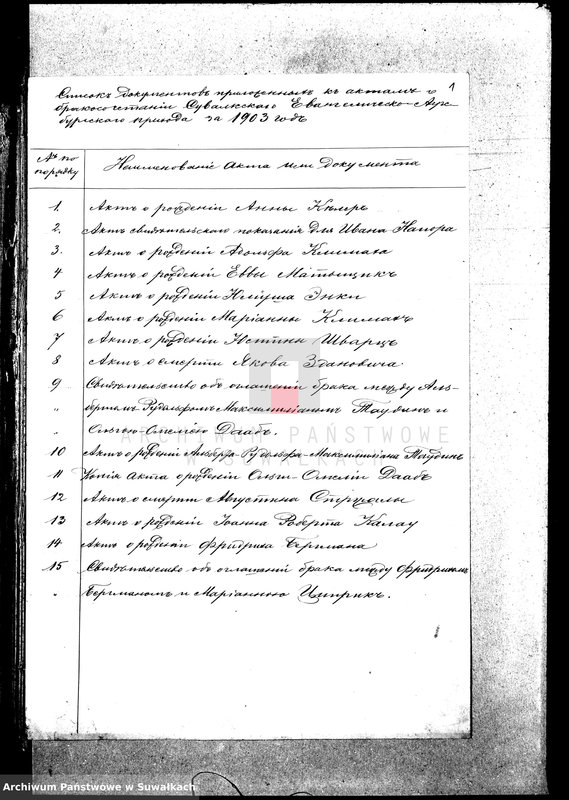 1
Списокъ документовъ приложенныхъ къ актамъ о
бракосочетаніи Сувалкскаго Евангелическо-Аугс-
бургскаго прихода за 1903 годъ
№№ по
порядку
Наименованіе акта или документа
1. Актъ о рожденіи Анны
2. Актъ свидѣтельскаго показанія для Ивана Напора
3. Актъ о рожденіи Адольфа Климата
4 Актъ о рожденіи Еввы Матыщикъ
5 Актъ о рожденіи Энки
6 Актъ о рожденіи Маріанны Климатъ
7 Актъ о рожденіи Юстины Шварцъ
8 Актъ о смерти Якова Здановича
9 Свидѣтельство объ оглашеніи брака между Аль-
„ бертомъ-Рудольфомъ-Максимиліаномъ Таубинъ и
„ Ольгою-Омеліею Даабъ.
10 Актъ о рожденіи Альберта-Рудольфа-Максимиліана Таубинъ
11 Копія акта о рожденіи Ольги-Омеліи Даабъ
12 Актъ о смерти Августина
13 Актъ о рожденіи Іоанна Роберта Калау
14 Актъ о рожденіи Фридриха Бергмана
15 Свидѣтельство объ оглашеніи брака между Фридрихомъ
„ Бергманомъ и Маріанною Цытрикъ.
ARCHIWUM PAŃSTWOWE
W SUWAŁKACH
Archiwum Państwowe w Suwałkach